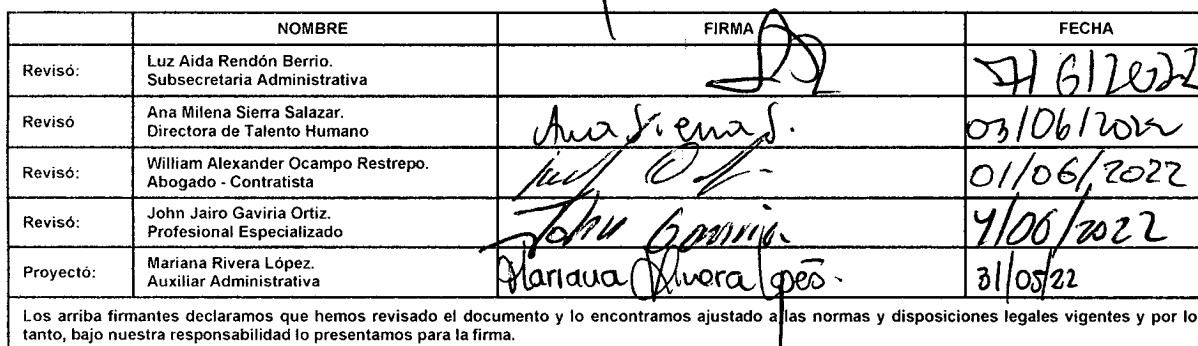 NOMBRE FIRMA FECHA
Revisó: Luz Aida Rendón Berrio.
Subsecretaria Administrativa 7/6/2022
Revisó Ana Milena Sierra Salazar.
Directora de Talento Humano Ana Sierra S. 03/06/2022
Revisó: William Alexander Ocampo Restrepo.
Abogado - Contratista 01/06/2022
Revisó: John Jairo Gaviria Ortiz.
Profesional Especializado John Gaviria /06/2022
Proyectó: Mariana Rivera López.
Auxiliar Administrativa Mariana Rivera López. 31/05/22
Los arriba firmantes declaramos que hemos revisado el documento y lo encontramos ajustado a las normas y disposiciones legales vigentes y por lo
tanto, bajo nuestra responsabilidad lo presentamos para la firma.